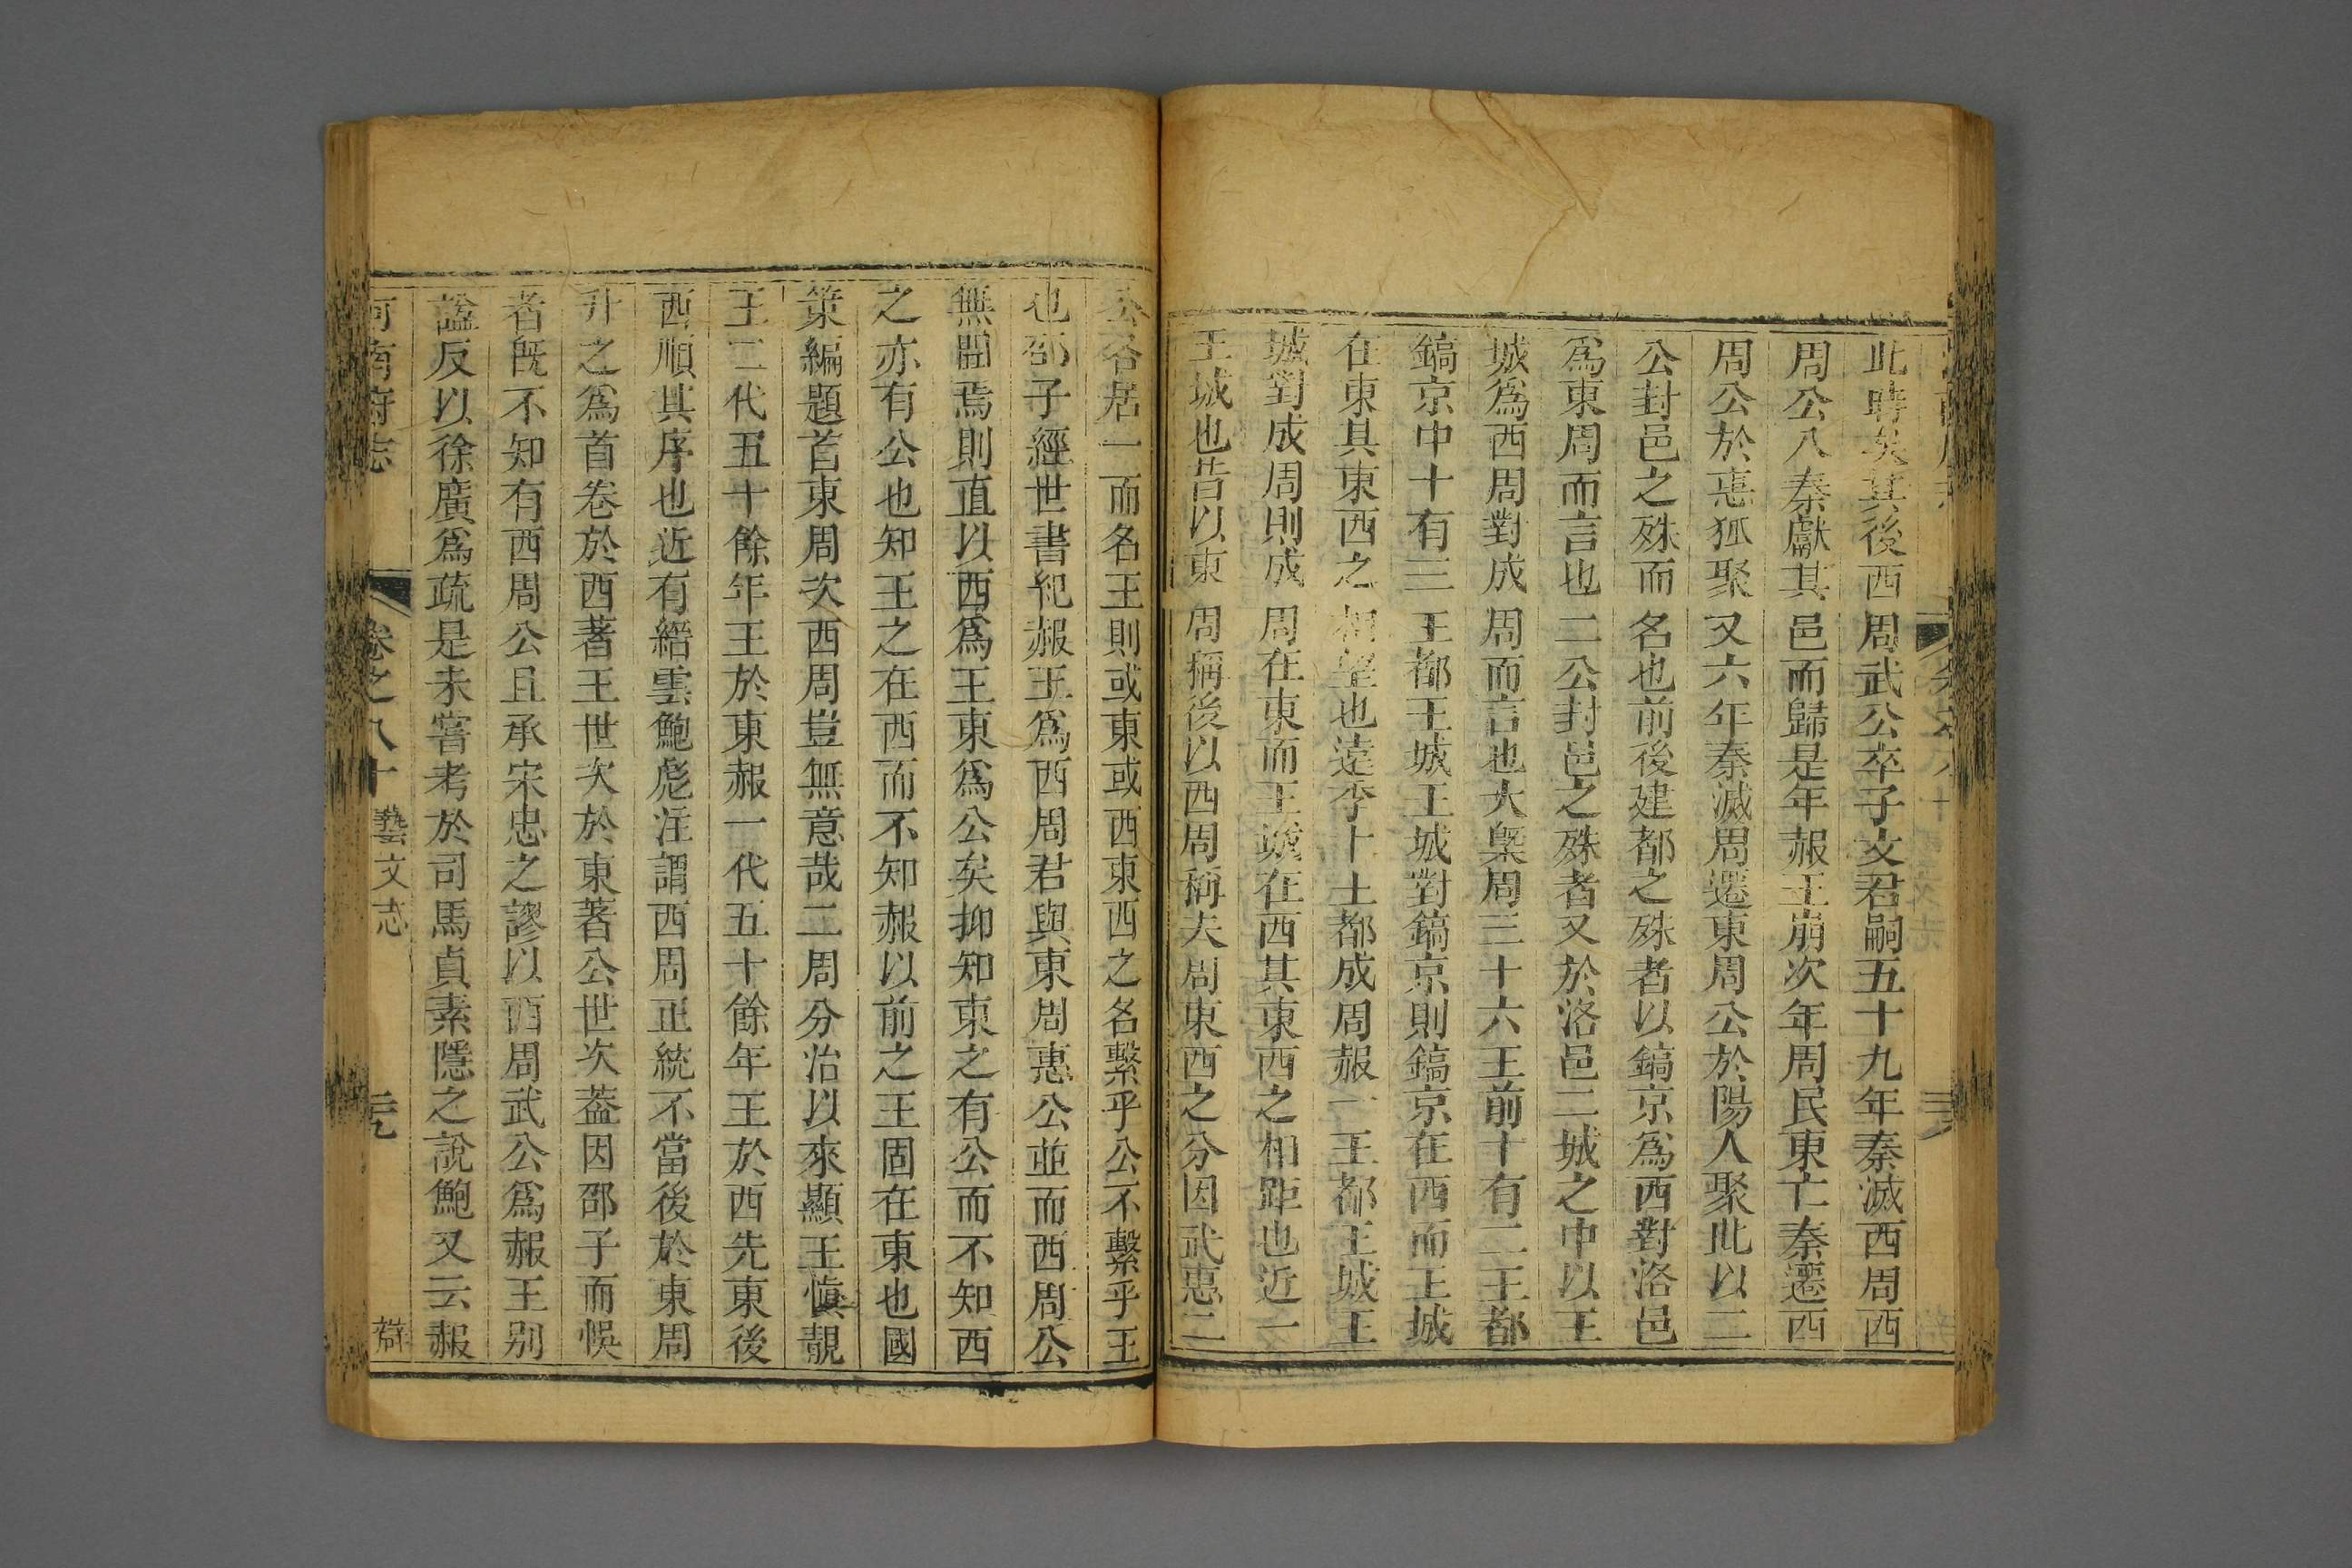 此時矣其後西周武公卒子文君嗣五十九年秦滅西周西
周公入秦獻其邑而歸是年赧王崩次年周民東亡秦遷西
周公於㥣狐聚又六年秦滅周遷東周公於陽人聚此以二
公封邑之殊而名也前後建都之殊者以鎬京爲西對洛邑
爲東周而言也二公封邑之殊者又於洛邑二城之中以王
城爲西周對成周而言也大槩周三十六王前十有二王都
鎬京中十有三王都王城王城對鎬京則鎬京在西而王城
在東其東西之相望也遠李十土都成周赧一王都王城王
城對成周則成周在東而王城在西其東西之相距也近一
王城也昔以東周稱後以西周稱夫周東西之分因武惠二
公各居一而名王則或東或西東西之名繫乎公不繫乎王
也邵子經世書紀赧王爲西周君與東周惠公並而西周公
無聞焉則直以西爲王東爲公矣抑知東之有公而不知西
之亦有公也知王之在西而不知赧以前之王固在東也國
策編題首東周次西周豈無意哉二周分治以來顯王愼靚
王二代五十餘年王於東赧一代五十餘年王於西先東後
西順其序也近有縉雲鮑彪注謂西周正統不當後於東周
升之爲首卷於西著王世次於東著公世次葢因邵子而悞
者旣不知有西周公且承宋忠之謬以西周武公爲赧王別
謚反以徐廣爲疏是未嘗考於司馬貞索隱之說鮑又云赧
河南府志 卷之八十 藝文志 三元